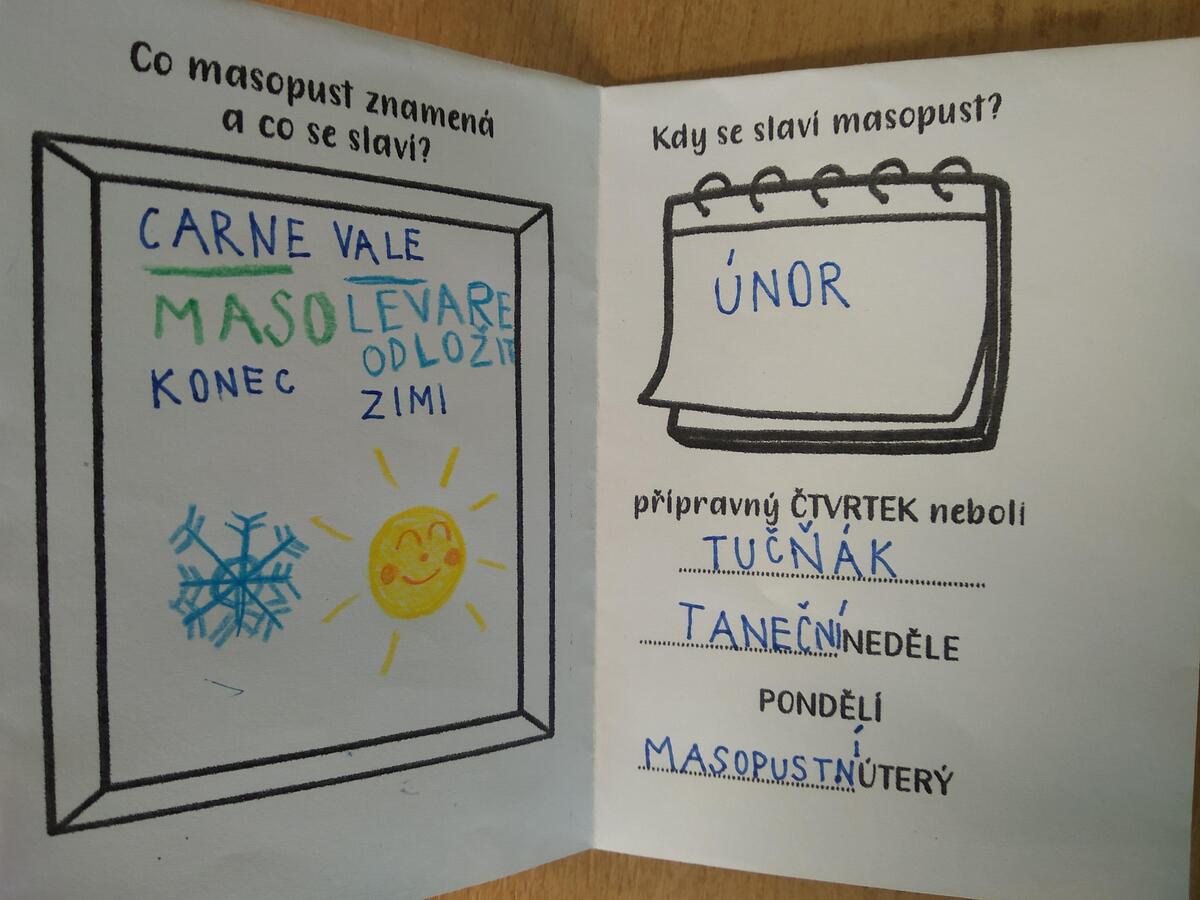 Co masopust znamená
a co se slaví?
CARNE VALE
MASO LEVARE
ODLOŽIT
KONEC ZIMI
Kdy se slaví masopust?
ÚNOR
přípravný ČTVRTEK neboli
TUČŇÁK
TANEČNÍ NEDĚLE
PONDĚLÍ
MASOPUSTNÍ ÚTERÝ